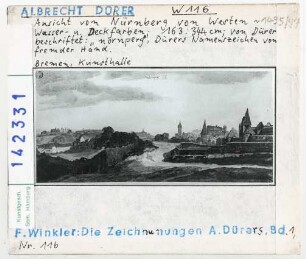 ALBRECHT DÜRER W 116
Ansicht von Nürnberg von Westen ~1495/97
Wasser- u. Deckfarben; 163:344cm; von Dürer
beschriftet: "nörnperg", Dürers Namenszeichen von
fremder Hand.
Bremen: Kunsthalle
142331
Kunstgesch.
Sem. Hamburg
F. Winkler: Die Zeichnungen A. Dürers, Bd. 1,
Nr. 116